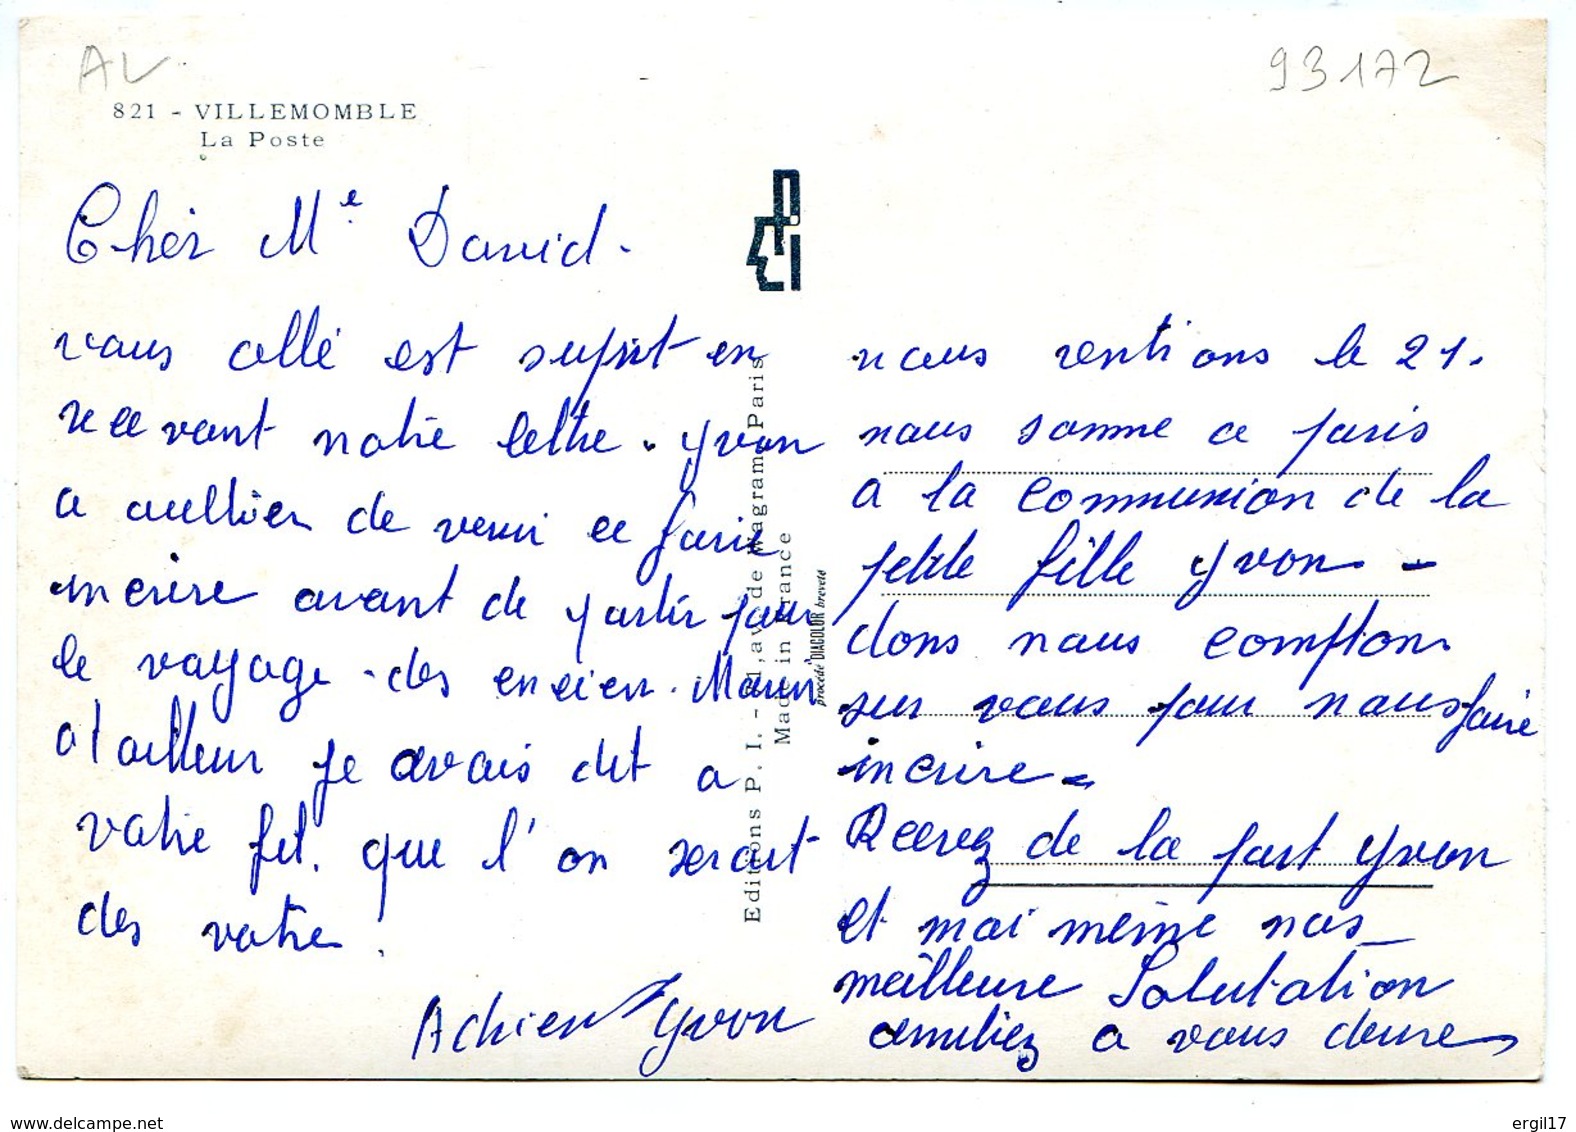 AV
93172
821 - VILLEMOMBLE
La Poste
Cher Me David.
vous allé est suprit en
recevant notre lettre. yvon
a oublier de venir ce faire
incrire avant de partir pour
le voyage des encien. Marin
d'ailleur je avais dit a
votre fil. que l'on serait
des votre.
Achien yvon
nous rentions le 21.
nous somme a paris
a la communion de la
petite fille yvon -
dons nous compton
sur vous pour nous faire
incrire -
Recevez de la part yvon
et moi même nos
meilleure Salutation
amitiez a vous deux
Editions P. I. - 61, av. de Wagram, Paris
Made in France
procédé DIACOLOR breveté
www.delcampe.net
ergil17